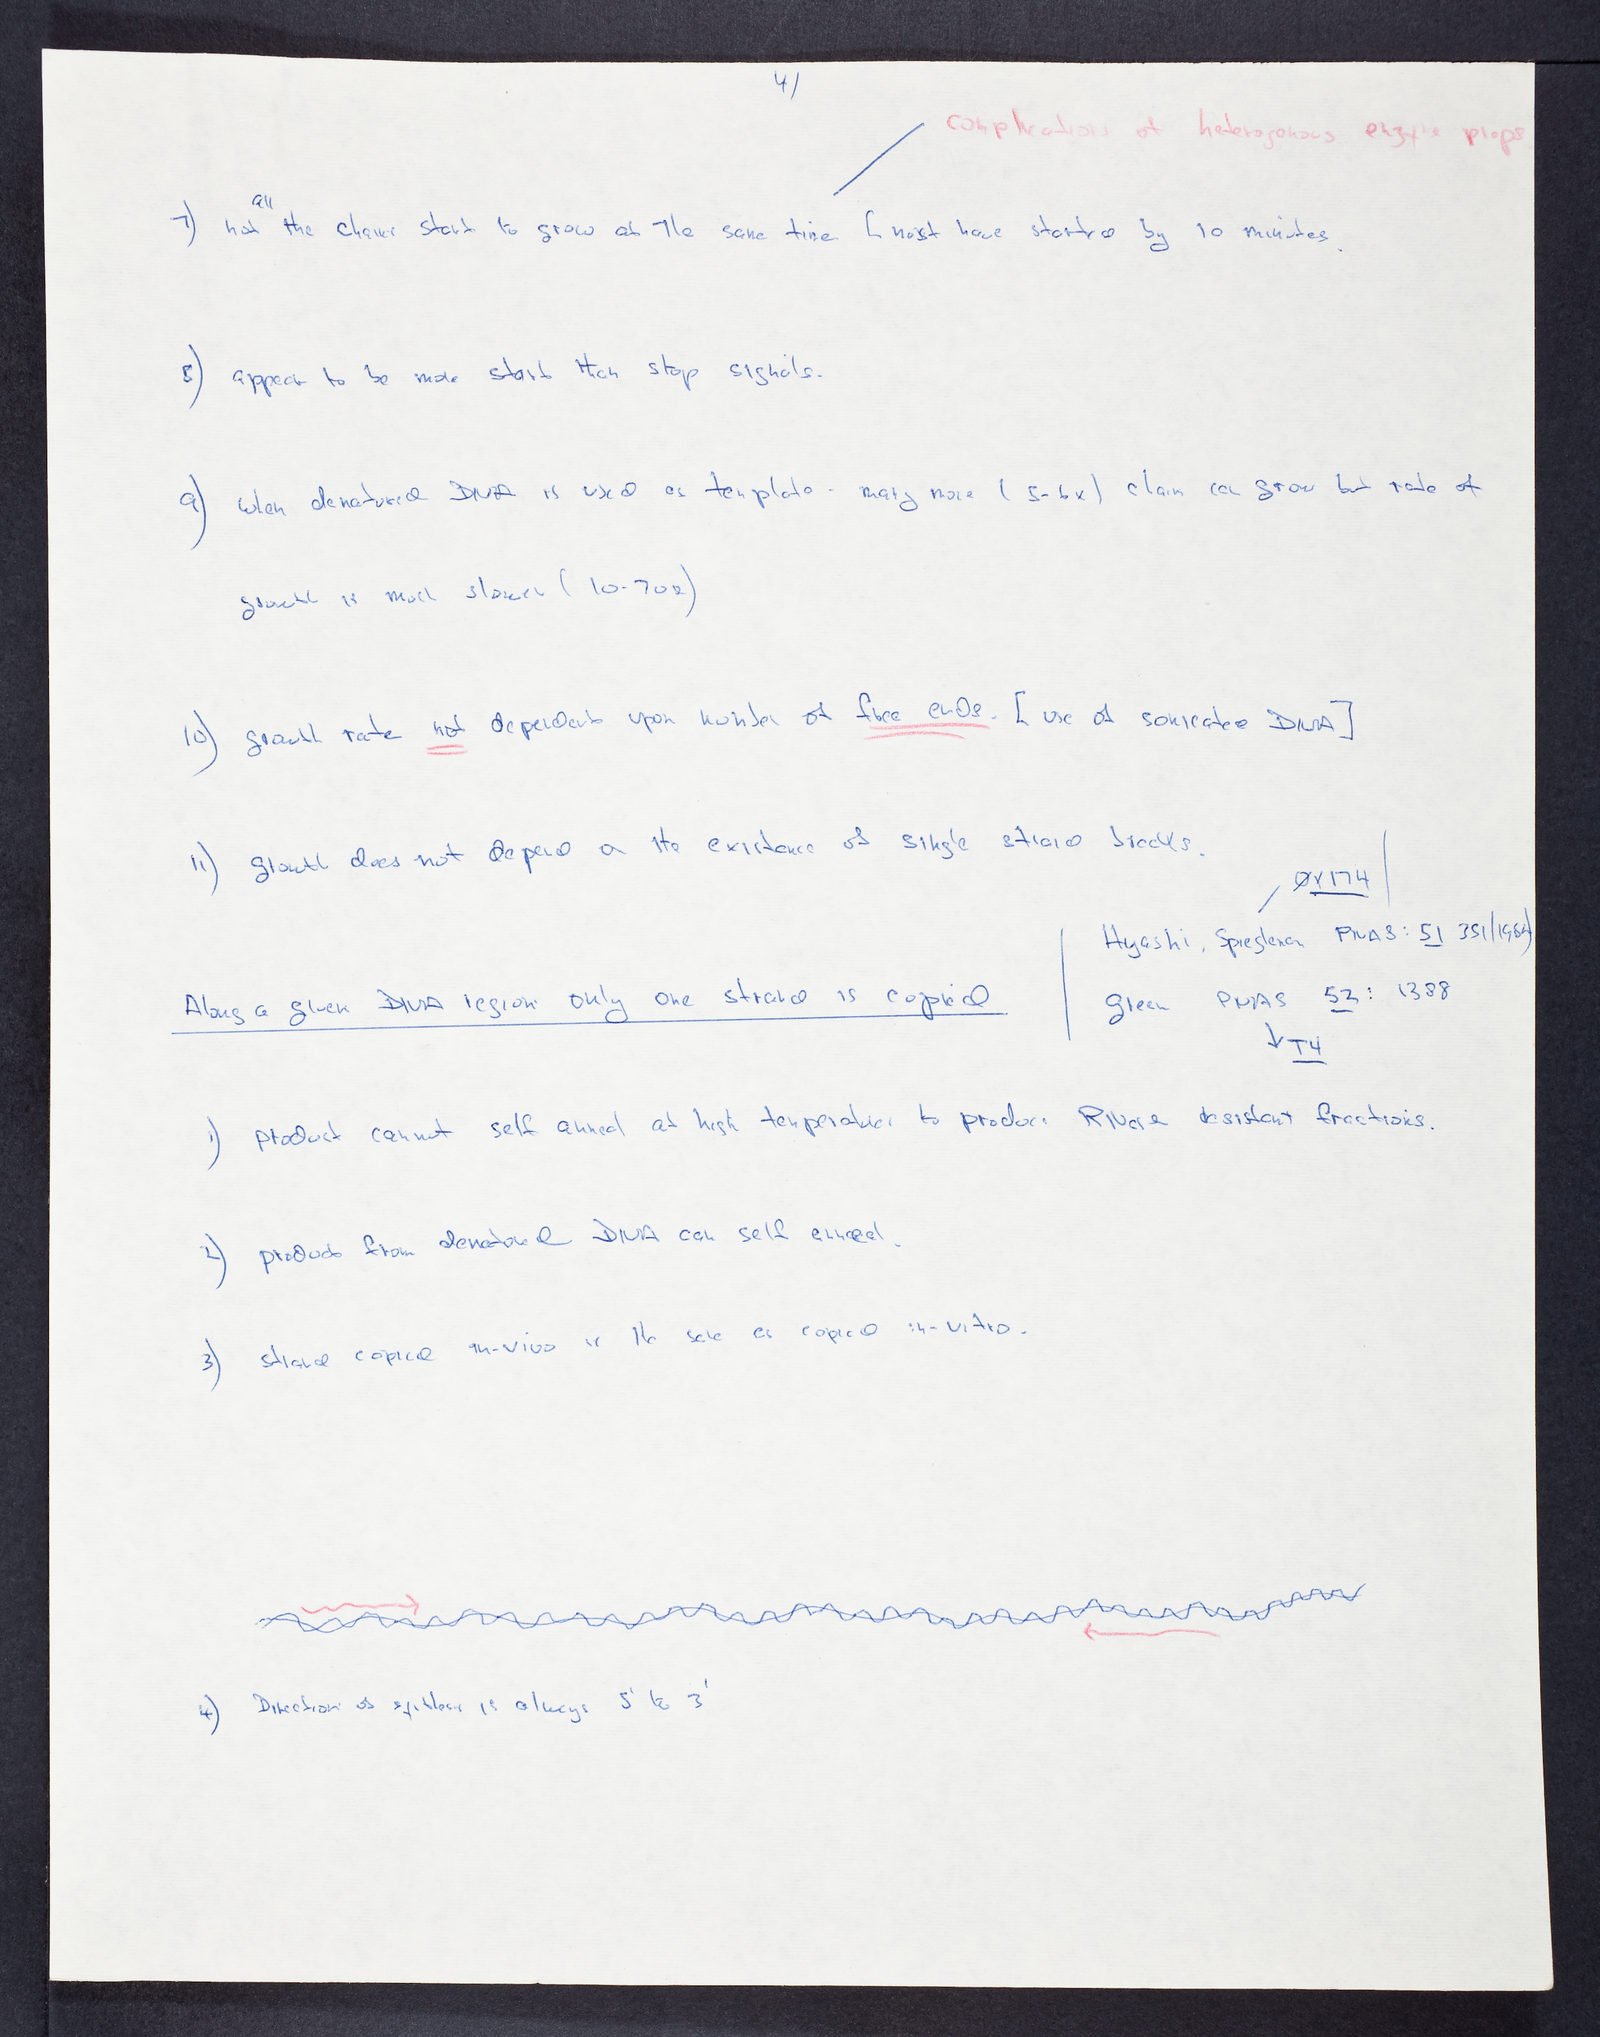 4/
complications of heterogenous enzyme preps
7) not all the chains start to grow at the same time [most have started by 10 minutes.
8) appear to be more start than stop signals.
9) when denatured DNA is used as template - many more (5-6x) chain can grow but rate of
growth is much slower (10-70x)
10) growth rate not dependent upon number of free ends. [use of sonicated DNA]
11) growth does not depend on the existence of single strand breaks.
ØX174
Hyashi, Spiegleman PNAS: 51 351/1964)
Along a given DNA region only one strand is copied
Green PNAS 53: 1388
T4
1) product cannot self anneal at high temperature to produce RNase resistant fractions.
2) product from denatured DNA can self anneal.
3) strand copied in-vivo is the same as copied in-vitro.
4) Direction of synthesis is always 5' to 3'